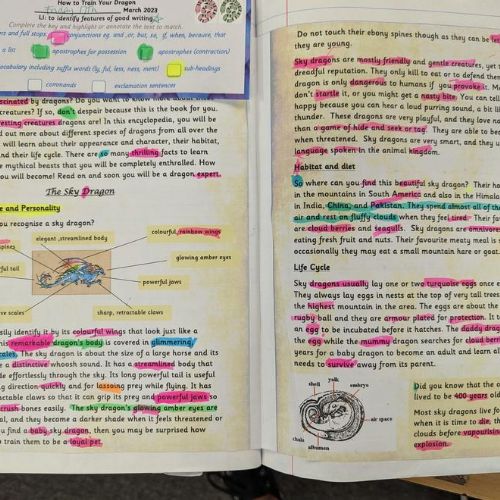 How to Train Your Dragon
Friday 17th March 2023
LI: to identify features of good writing.
Complete the key and highlight or annotate the text to match.
and full stops, conjunctions eg. and, or, but, so, if, when, because, that
a list apostrophes for possession apostrophes (contraction)
vocabulary including suffix words (ly, ful, less, ness, ment) sub-headings
commands exclamation sentences
by dragons? Do you want to know more about these
creatures? If so, don't despair because this is the book for you.
creatures dragons are! In this encyclopedia, you will be
out more about different species of dragons from all over the
will learn about their appearance and character, their habitat,
and their life cycle. There are so many thrilling facts to learn
mythical beasts that you will be completely enthralled. How
you will become! Read on and soon you will be a dragon expert.
The Sky Dragon
and Personality
you recognise a sky dragon?
spines
elegant, streamlined body
colourful, rainbow wings
glowing amber eyes
tail
powerful jaws
scales
sharp, retractable claws
identify it by its colourful wings that look just like a
remarkable dragon's body is covered in glimmering,
scales. The sky dragon is about the size of a large horse and its
a distinctive whoosh sound. It has a streamlined body that
effortlessly through the sky. Its long powerful tail is useful
direction quickly and for lassoing prey while flying. It has
claws so that it can grip its prey and powerful jaws so
crush bones easily. The sky dragon's glowing amber eyes are
and they become a darker shade when it feels threatened or
find a baby sky dragon, then you may be surprised how
train them to be a loyal pet.
Do not touch their ebony spines though as they can be
they are young.
Sky dragons are mostly friendly and gentle creatures, yet
dreadful reputation. They only kill to eat or to defend the
dragon is only dangerous to humans if you provoke it. M
don't startle it, or you might get a nasty bite. You can
happy because you can hear a loud purring sound, a bit li
thunder. These dragons are very playful, and they love no
than a game of hide and seek or tag. They are able to be
when threatened. Sky dragons are very smart, and they u
language spoken in the animal kingdom.
Habitat and diet
So where can you find this beautiful sky dragon? Their ho
in the mountains in South America and also in the Himala
in India, China, and Pakistan. They spend almost all of the
air and rest on fluffy clouds when they feel tired. Their fa
are cloud berries and seagulls. Sky dragons are omnivores
eating fresh fruit and nuts. Their favourite meaty meal is
occasionally they may eat a small mountain hare or goat.
Life Cycle
Sky dragons usually lay one or two turquoise eggs once e
They always lay eggs in nests at the top of very tall trees
the highest mountain in the area. The eggs are about the
rugby ball and they are armour plated for protection. It t
an egg to be incubated before it hatches. The daddy drag
the egg while the mummy dragon searches for cloud berri
years for a baby dragon to become an adult and learn al
needs to survive away from its parent.
shell yolk embryo
air space
chala
albumen
Did you know that the
lived to be 400 years old
Most sky dragons live f
when it is time to die, th
clouds before vapourising
explosion.